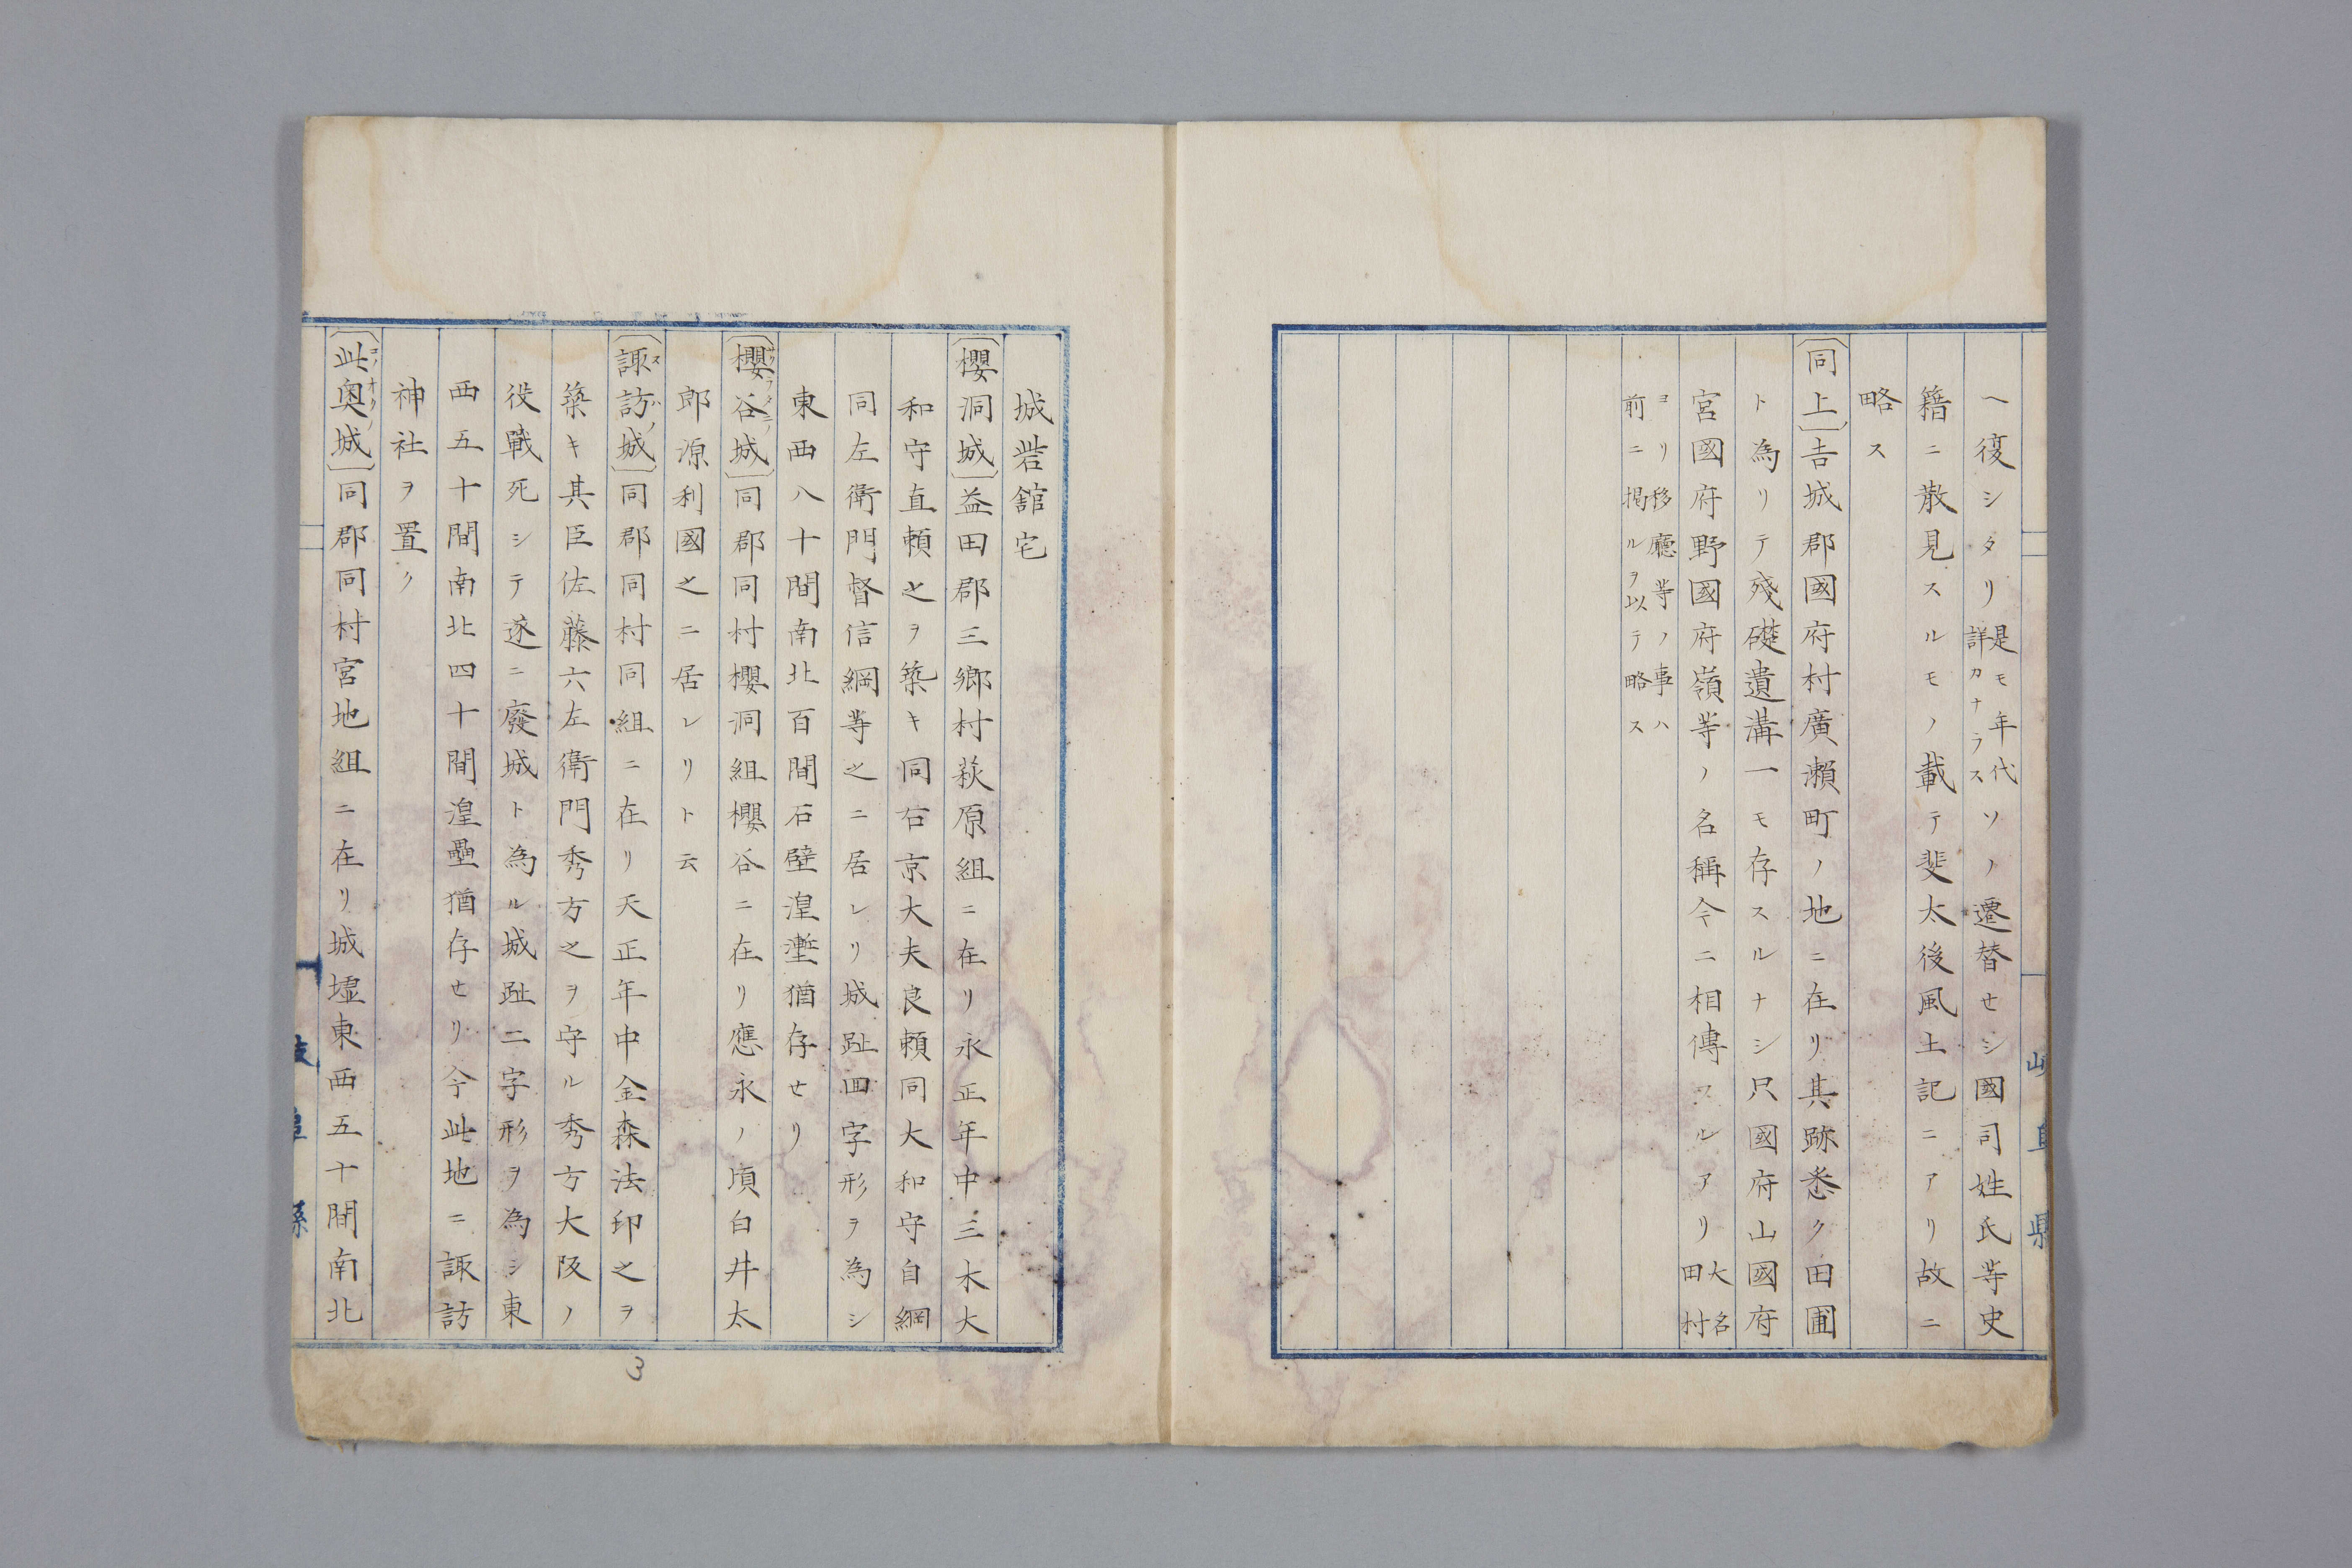 ヘ復シタリ是モ年代詳カナラスソノ遷替セシ國司姓氏等史
籍ニ散見スルモノ載テ斐太後風土記ニアリ故ニ
略ス
〔同上〕吉城郡國府村廣瀬町ノ地ニ在リ其跡悉ク田圃
ト為リテ殘礎遺溝一モ存スルナシ只國府山國府
宮國府野國府嶺等ノ名稱今ニ相傳フルアリ大名田村
ヨリ移廳等ノ事ハ前ニ掲ルヲ以テ略ス
岐阜縣
城砦舘宅
〔櫻洞城〕益田郡三郷村萩原組ニ在リ永正年中三木大
和守直頼之ヲ築キ同右京大夫良頼同大和守自綱
同左衛門督信綱等之ニ居レリ城趾四字形ヲ為シ
東西八十間南北百間石壁湟壍猶存セリ
〔櫻谷城〕同郡同村櫻洞組櫻谷ニ在リ應永ノ頃白井太
郎源利國之ニ居レリト云
〔諏訪城〕同郡同村同組ニ在リ天正年中金森法印之ヲ
築キ其臣佐藤六左衛門秀方之ヲ守ル秀方大阪ノ
役戰死シテ遂ニ廢城ト為ル城趾二字形ヲ為シ東
西五十間南北四十間湟壘猶存セリ今此地ニ諏訪
神社ヲ置ク
〔此奥城〕同郡同村宮地組ニ在リ城墟東西五十間南北
岐阜縣
3